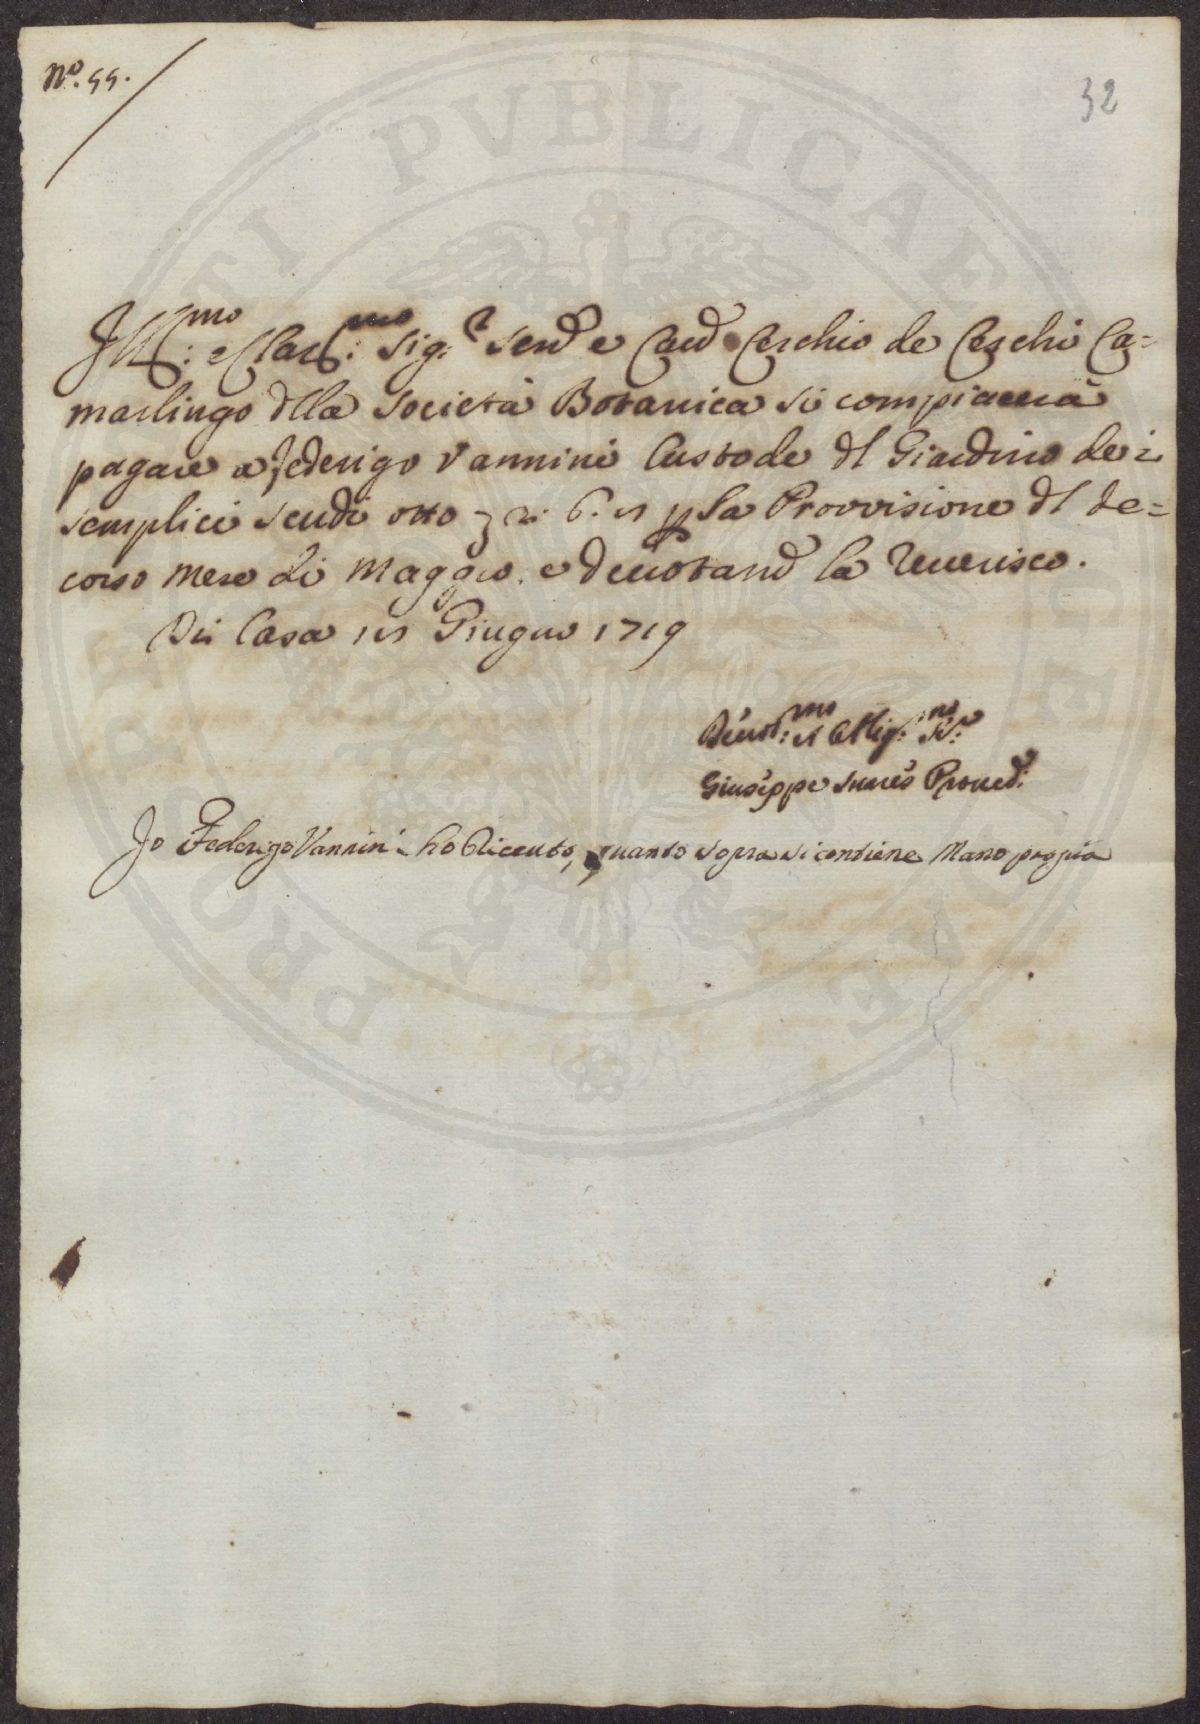 N.º 55.
32
Ill.mo e Clar.mo Sig.r Send e Caud Cerchio de Cerchi Ca=
marlingo dlla Società Botanica si compiacerà
pagare a Federigo Vannini Custode dl Giardino dei
semplici scudi otto
p la Provvisione dl de=
corso Mese di Maggio. e devotand la reverisco.
Di Casa Giugno 1719
Devot.mo et Obblig.mo Se.re
Giuseppe Suares Proved.
Io Federigo Vannini ho Riceuto, quanto sopra si contiene Mano propia
PROSPERITATI PVBLICAE